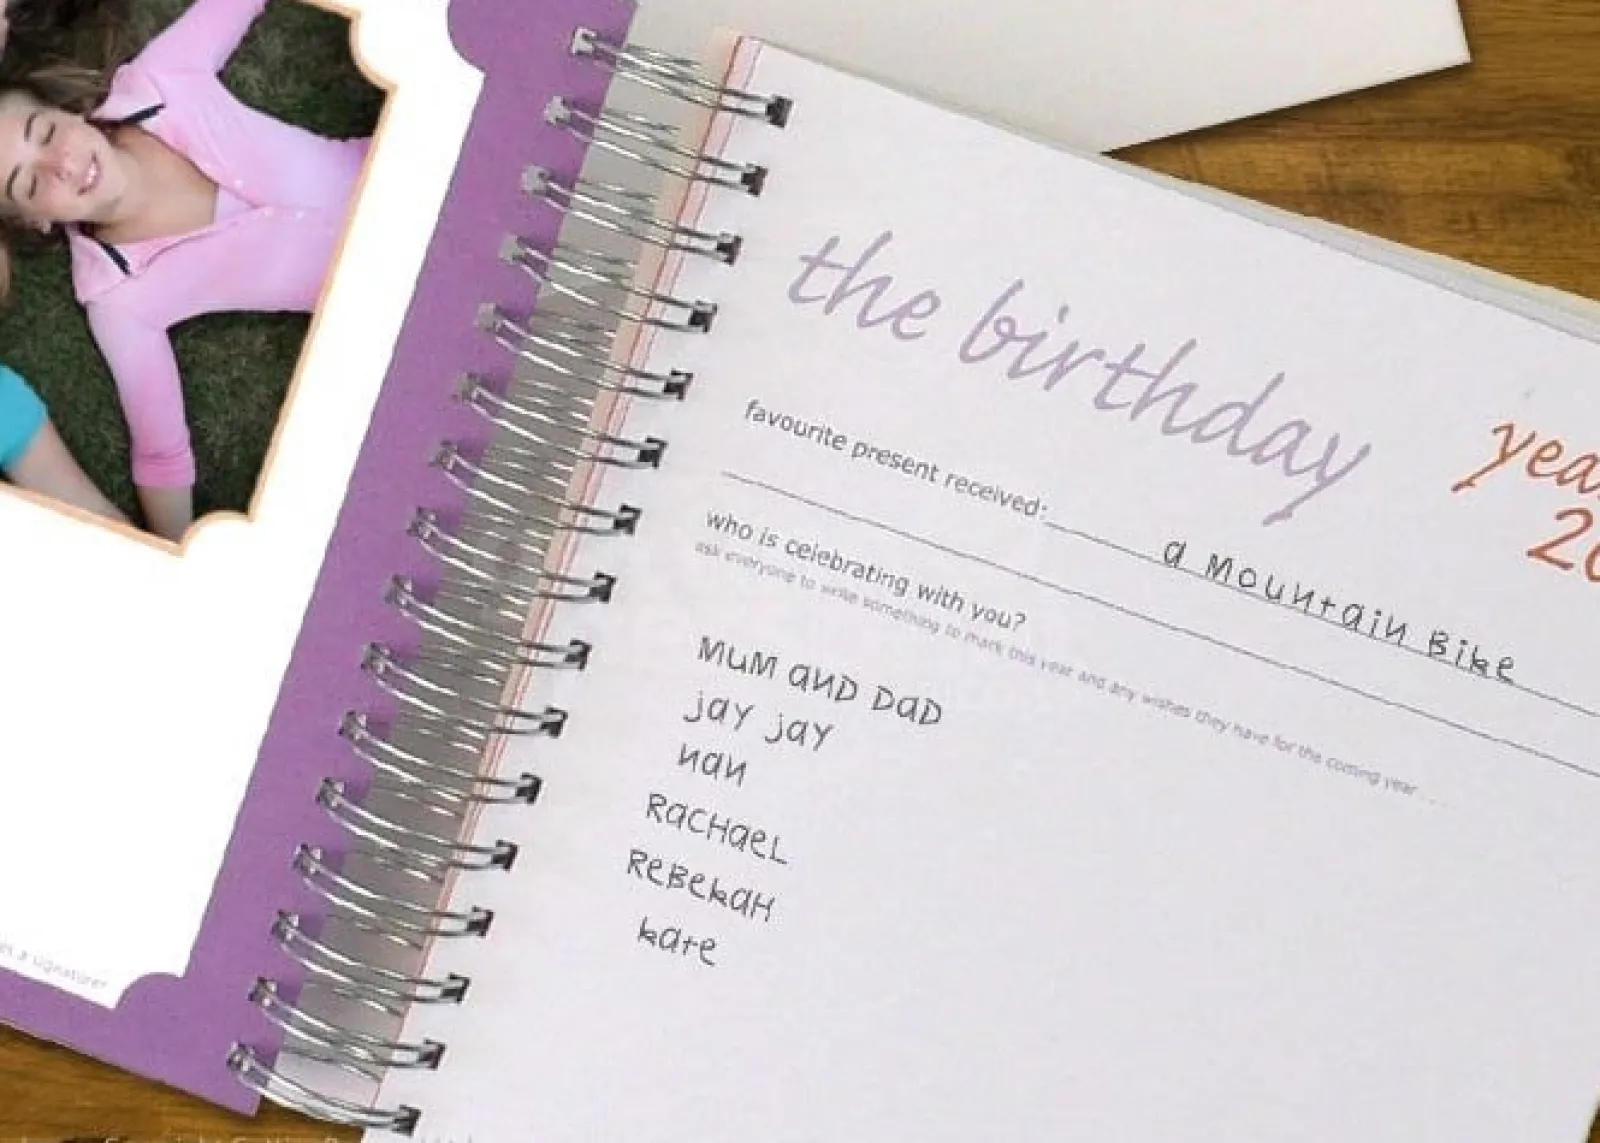 the birthday
year
favourite present received: a MOUNtaiN BikE
who is celebrating with you?
ask everyone to write something to mark this year and any wishes they have for the coming year . . .
MUM aND DaD
jay jay
nan
RaCHaeL
ReBekaH
kate
as a signature?